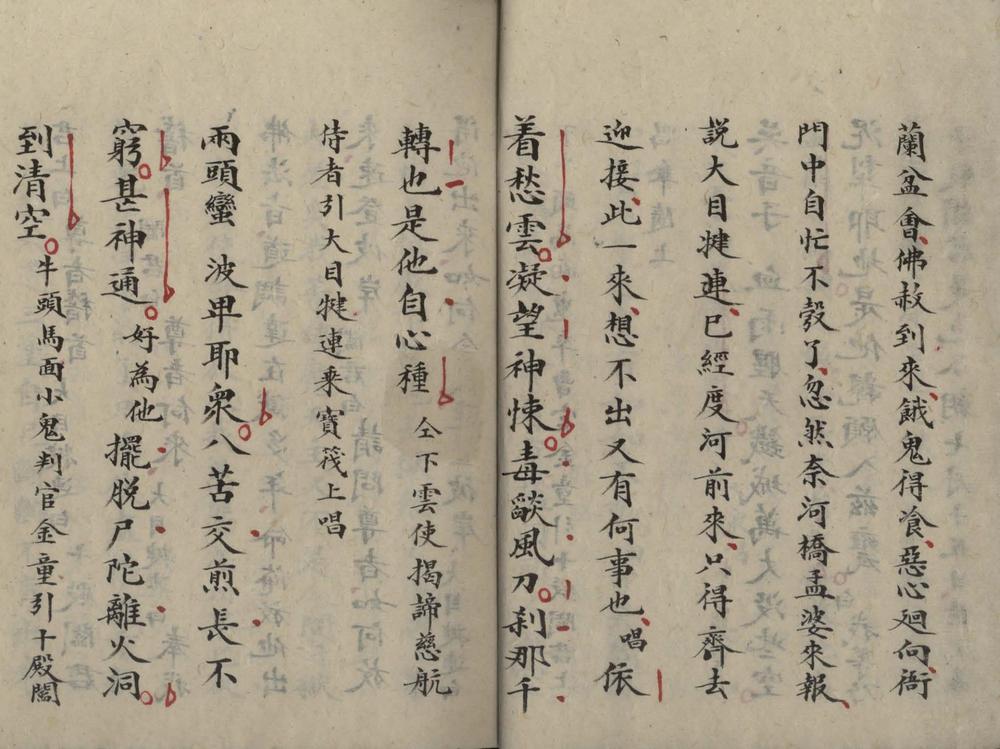 蘭盆會佛赦到來餓鬼得飡惡心廻向衙
門中自忙不彀了忽然奈河橋孟婆來報
說大目犍連已經度河前來只得齊去
迎接此一來想不出又有何事也唱依
着愁雲凝望神悚毒燄風刀刹那千
轉也是他自心種仝下雲使揭諦慈航
侍者引大目犍連乘寶筏上唱
兩頭蠻波卑耶衆八苦交煎長不
窮甚神通好為他擺脫尸陀離火洞
到清空牛頭馬面小鬼判官金童引十殿閻